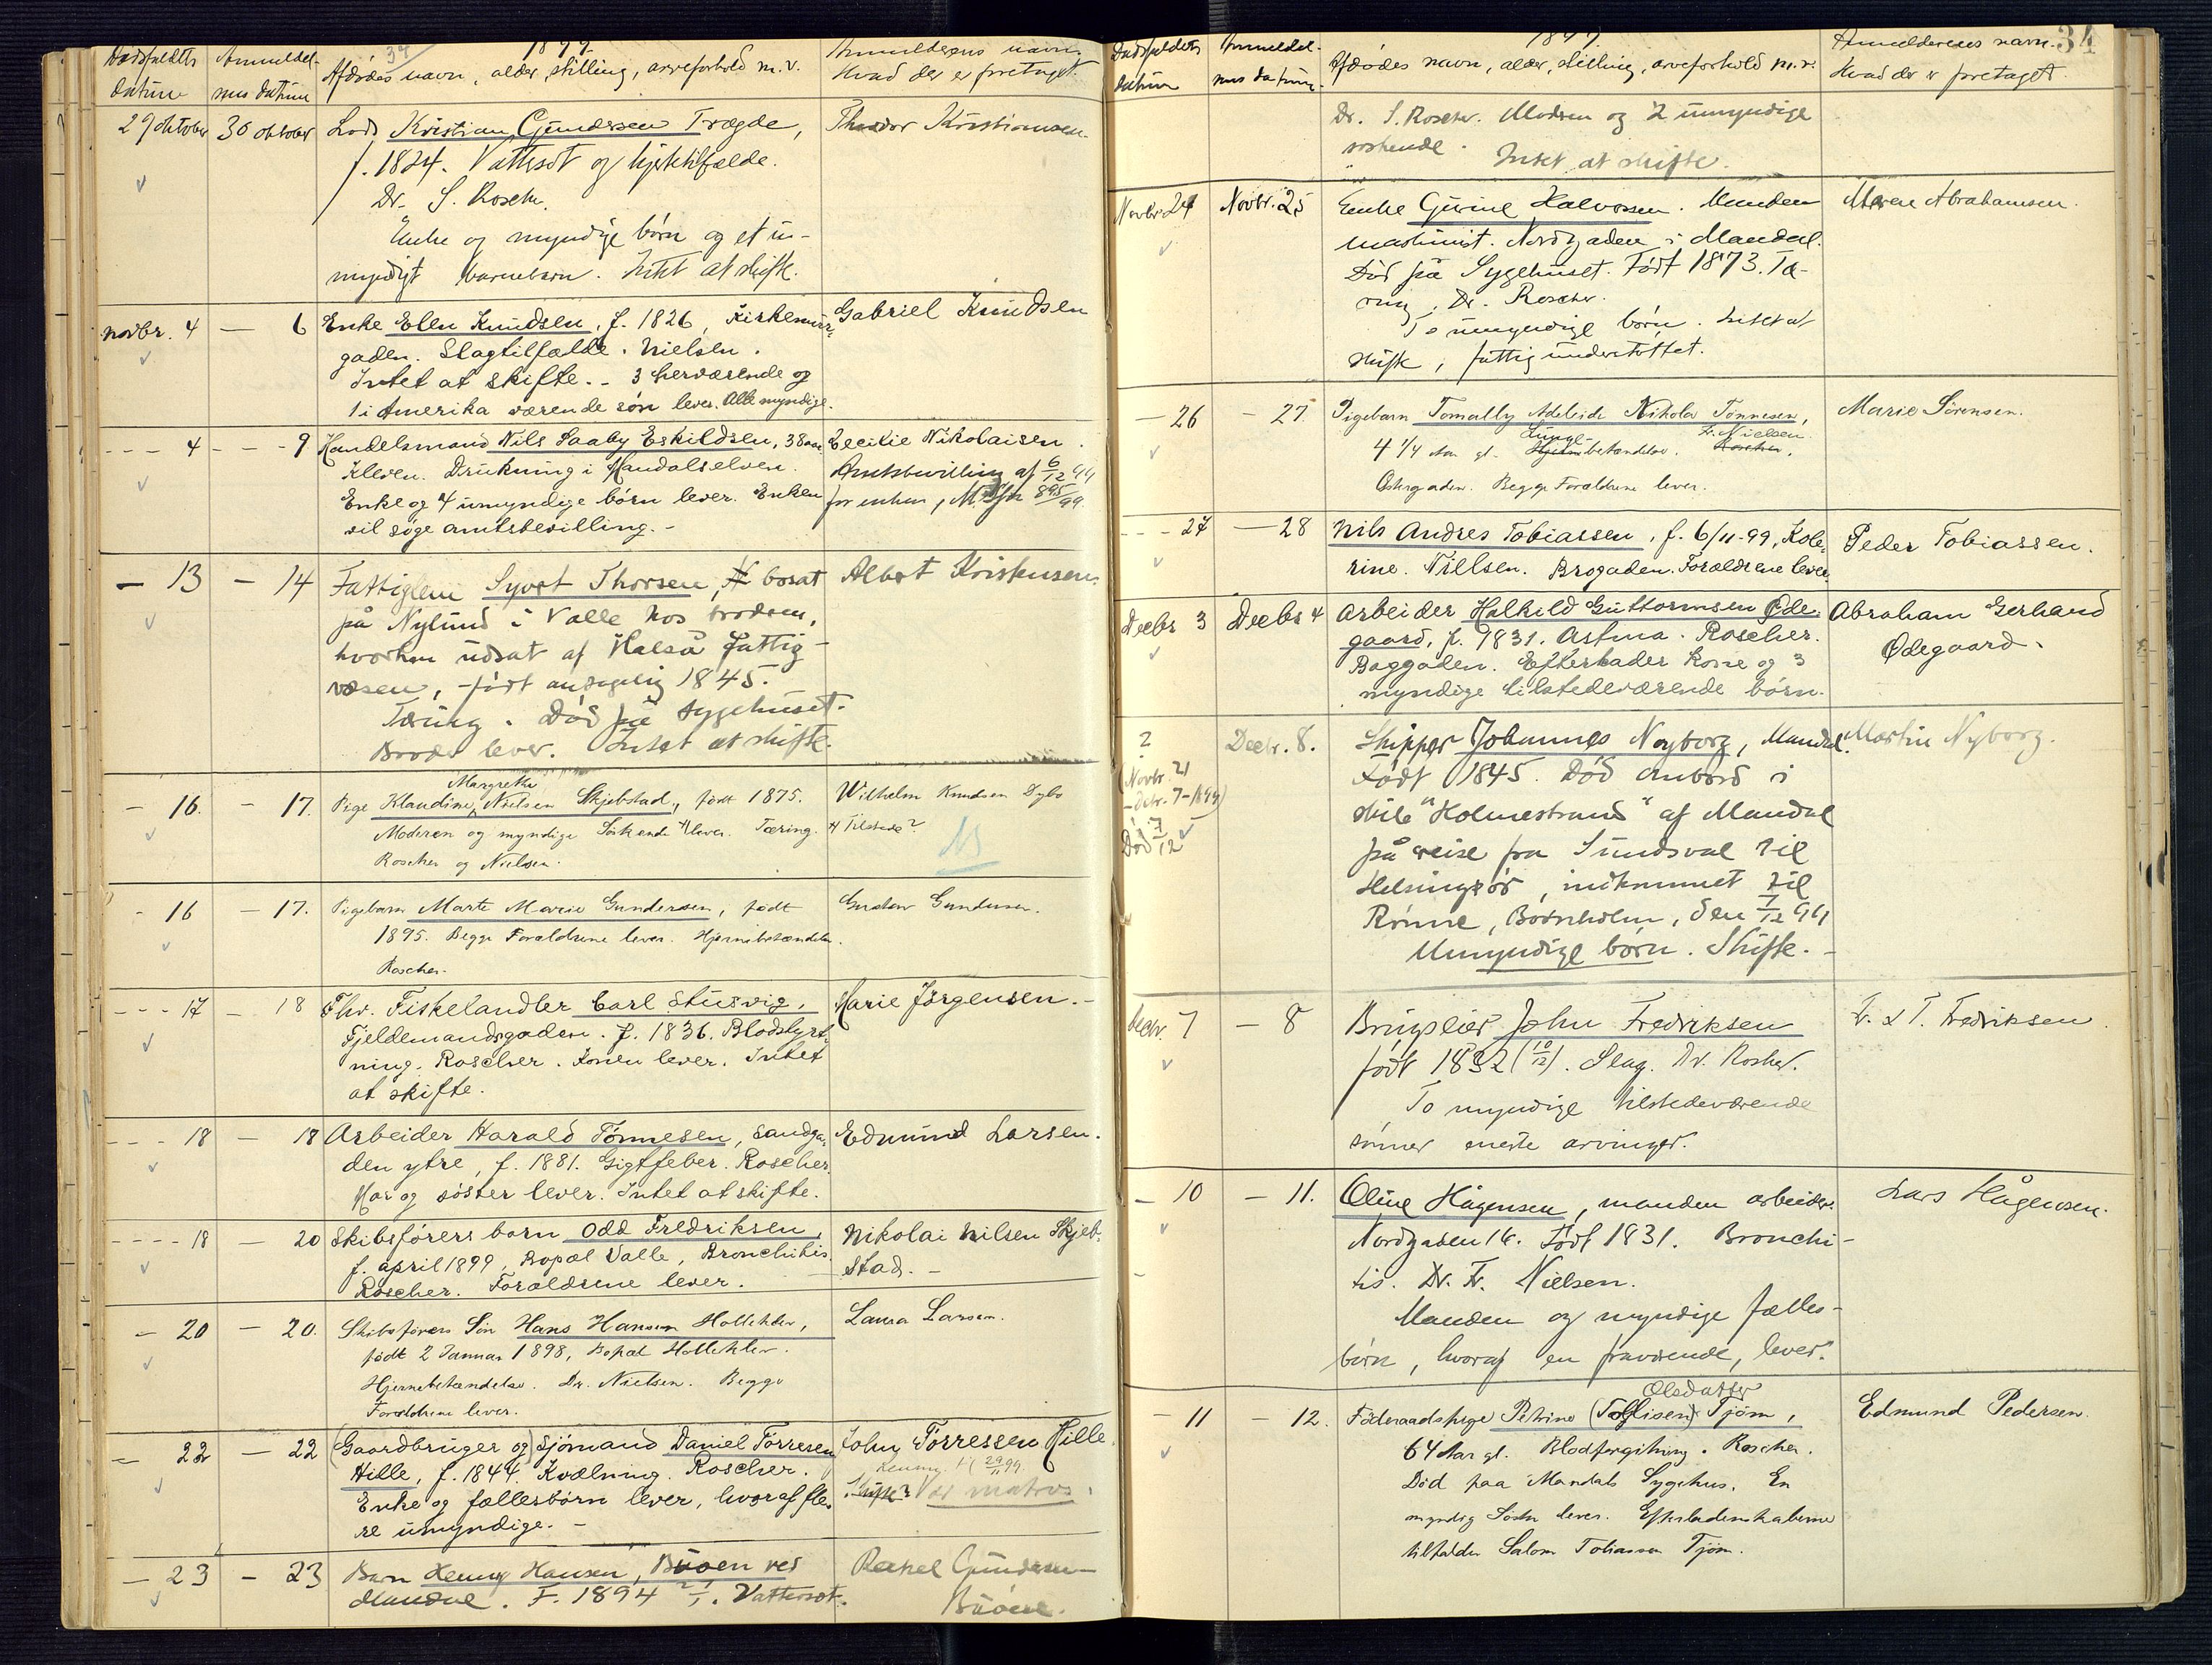 34
1899.
Dødsfaldets datum
Anmeldelsens datum
Afdødes navn, alder, stilling, arveforhold m.v.
Anmelderens navn.
Hvad der er foretaget.
29 oktober
30 oktober
Lods Kristian Gundersen Trægde,
f. 1824. Vattersot og hjertetilfælde.
Dr. S. Roscher.
Enke og myndige børn og et u-
myndigt barnebarn. Intet at skifte.
Theodor Kristiansen.
novbr. 4
— 6
Enke Elen Knudsen, f. 1826, Kirkemur-
gaden. Slagtilfælde. Nielsen.
Intet at skifte. - 3 herværende og
1 i Amerika værende søn lever. Alle myndige.
Gabriel Knudsen
- - - 4
- - 9
Handelsmand Nils Saaby Eskildsen, 38 aar
Kleven. Drukning i Mandalselven.
Enke og 4 umyndige børn lever. Enken
vil søge amtsbevilling. -
Cecilie Nikolaisen.
Amtsbevilling af 6/12 99
for enken,
— 13
— 14
Fattiglem Syvert Thorsen, bosat
på Nylund i Valle hos broderen,
hvorhen udsat af Halså fattig-
væsen, født angivelig 1845.
Tæring. Død på sygehuset.
Broder lever. Intet at skifte.
Albert Kristensen.
— 16.
— 17.
Margrethe
Pige Klaudine Nielsen Skjebstad, født 1875.
Moderen og myndige Søskende lever. Tæring.
Roscher og Nielsen.
Wilhelm Knudsen Dybo
Tilstede?
- 16
- 17.
Pigebarn Marte Marie Gundersen, født
1895. Begge Forældrene lever. Hjernebetændelse.
Roscher.
Gustav Gundersen.
- - - 17
- 18
Fhv. Fiskehandler Carl Stusvig,
Fjeldemandsgaden. f. 1836. Blodstyrt-
ning. Roscher. Konen lever. Intet
at skifte.
Marie Jørgensen. -
- - - 18
- 18
Arbeider Harald Tønnesen, Sandga-
den ytre, f. 1881. Gigtfeber. Roscher.
Mor og søster lever. Intet at skifte.
Edmund Larsen.
- - - - 18
- 20
Skibsførers barn Odd Fredriksen,
f. april 1899, Bopæl Valle, Bronchitis.
Roscher. Forældrene lever.
Nikolai Nilsen Skjeb-
stad. -
— 20
— 20.
Skibsførers Søn Hans Hansen Holleklev,
født 2 Januar 1898, Bopæl Holleklev.
Hjernebetændelse. Dr. Nielsen. Begge
Forældrene lever.
Laura Larsen.
— 22
— 22
(Gaardbruger og) Sjømand Daniel Torresen
Hille, f. 1844. Kvælning. Roscher.
Enke og fællesbørn lever, hvoraf fle-
re umyndige. -
John Torressen Hille.
29/11 99.
Skifte? Var matros.
— 23
— 23
Barn Henny Hansen, Buøen ved
Mandal. F. 1894. Vattersot.
Rakel Gundersen
Buøen.
34
1899
Dødsfaldets datum
Anmeldelsens datum
Afdødes navn, alder, stilling, arveforhold m.v.
Anmelderens navn.
Hvad der er foretaget.
Dr. S. Roscher. Modren og 2 umyndige
søskende. Intet at skifte.
Novbr. 24
Novbr. 25
Enke Gurine Halvorsen. Manden
maskinist. Nordgaden i Mandal.
Død på Sygehuset. Født 1873. Tæ-
ring. Dr. Roscher.
To umyndige børn. Intet at
skifte, fattigunderstøttet.
Maren Abrahamsen.
— 26
— 27.
Pigebarn Tomally Adeleide Nikola Tønnesen,
Lunge- Fr. Nielsen.
4 1/4 Aar gl. Hjernebetændelse. Roscher.
Østregaden. Begge Forældrene lever.
Marie Sørensen.
- - - 27
— 28
Nils Andres Tobiassen, f. 6/11-99, Kole-
rine. Nielsen. Brogaden. Forældrene lever.
Peder Tobiassen.
Decbr 3
Decbr 4
Arbeider Halkild Guttormsen Øde-
gaard, f. 1831. Astma. Roscher.
Baggaden. Efterlader kone og 3
myndige tilstedeværende børn.
Abraham Gerhard
Ødegaard.
?
(Novbr. 21
- Decbr. 7 - 1899)
Død 7/12
Decbr. 8.
Skipper Johannes Nyborg, Mandal.
Født 1845. Død ombord i
skib "Holmestrand" af Mandal
på reise fra Sundsval til
Helsingør, indkommet til
Rønne, Bornholm, den 7/12 99
Umyndige børn. Skifte. -
Martin Nyborg.
Decbr. 7
— 8
Brugseier John Fredriksen
født 1832 (10/12). Slag. Dr. Roscher.
To myndige tilstedeværende
sønner eneste arvinger.
F. & T. Fredriksen.
— 10
— 11.
Oline Hågensen, manden arbeider.
Nordgaden 16. Født 1831. Bronchi-
tis. Dr. Fr. Nielsen.
Manden og myndige fælles-
børn, hvoraf en fraværende, lever.
Lars Hågensen.
— 11
— 12.
Olsdatter
Føderaadspige Petrine (Tollisen) Tjøm,
64 Aar gl. Blodforgiftning. Roscher.
Død paa Mandals Sygehus. En
myndig Søster lever. Efterladenskaberne
tilfalder Salom Tobiassen Tjøm.
Edmund Pedersen.